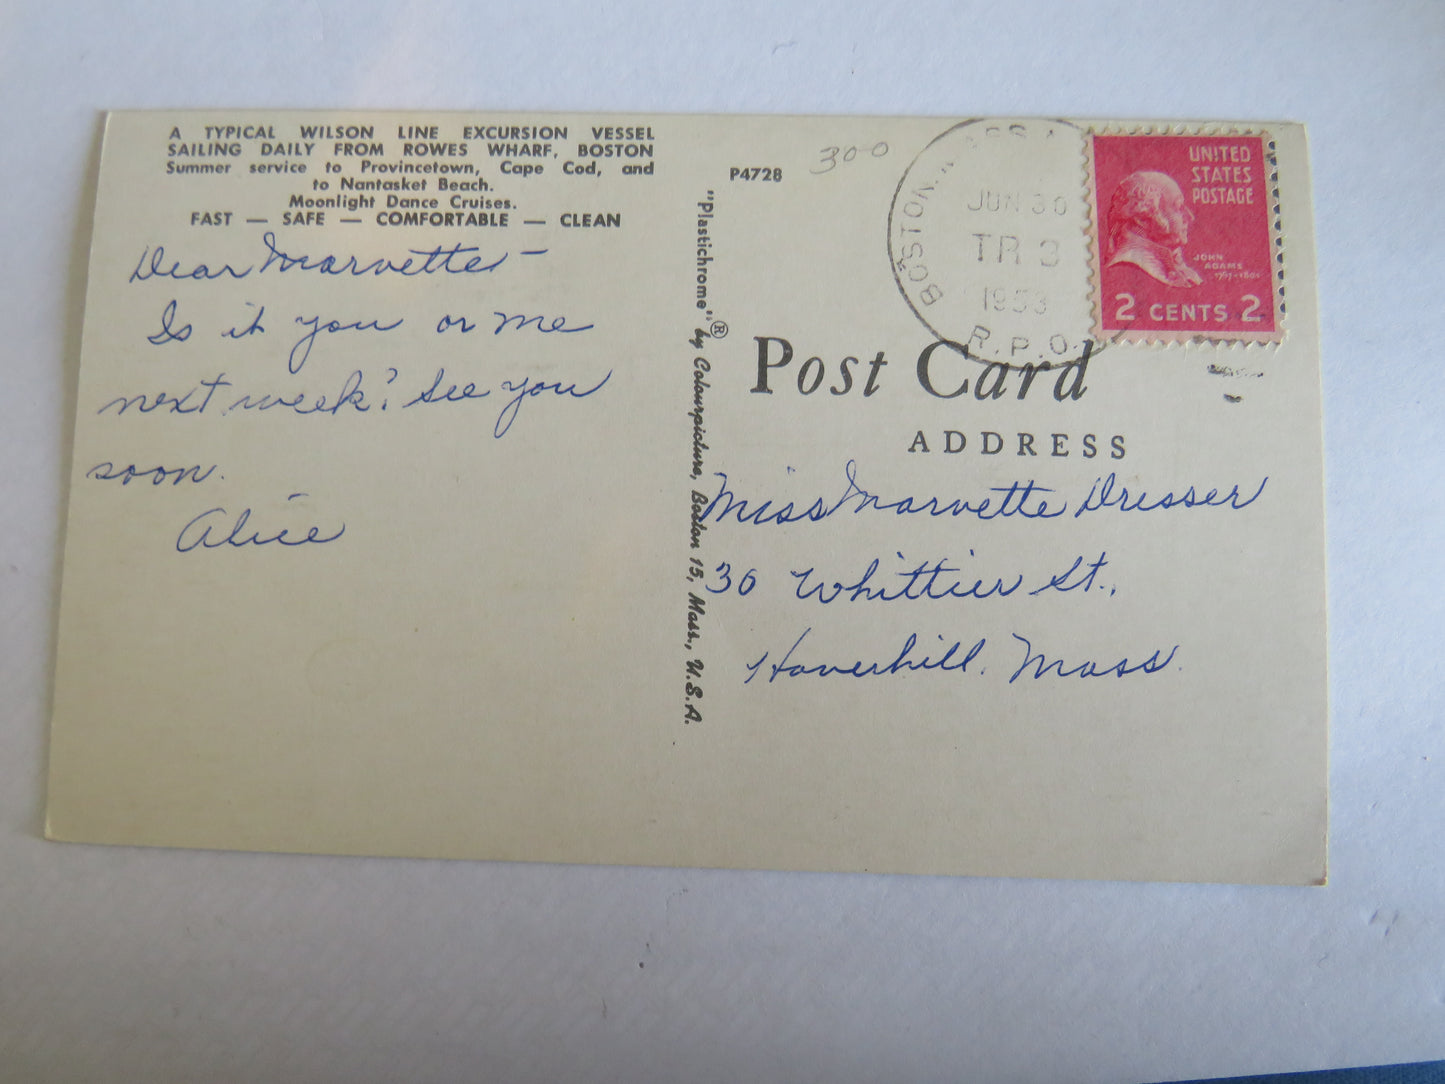 A TYPICAL WILSON LINE EXCURSION VESSEL
SAILING DAILY FROM ROWES WHARF, BOSTON
Summer service to Provincetown, Cape Cod, and
to Nantasket Beach.
Moonlight Dance Cruises.
FAST — SAFE — COMFORTABLE — CLEAN
Dear Marvette –
Is it you or me
next week? See you
soon.
Alice
"Plastichrome"® by Colourpicture, Boston 15, Mass., U.S.A.
P4728
300
BOSTON, MASS.
JUN 30
TR 3
1953
R.P.O.
UNITED
STATES
POSTAGE
JOHN
ADAMS
1797-1801
2 CENTS 2
Post Card
ADDRESS
Miss Marvette Dresser
30 Whittier St.,
Haverhill. Mass.